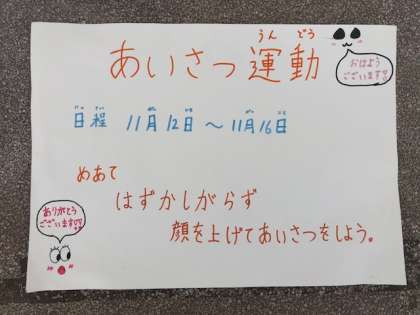 うん どう
あいさつ運動
おはよう
ございます!!
にっ てい
日程 11月12日～11月16日
めあて
はずかしがらず
顔を上げてあいさつをしよう。
ありがとう
ございます!!